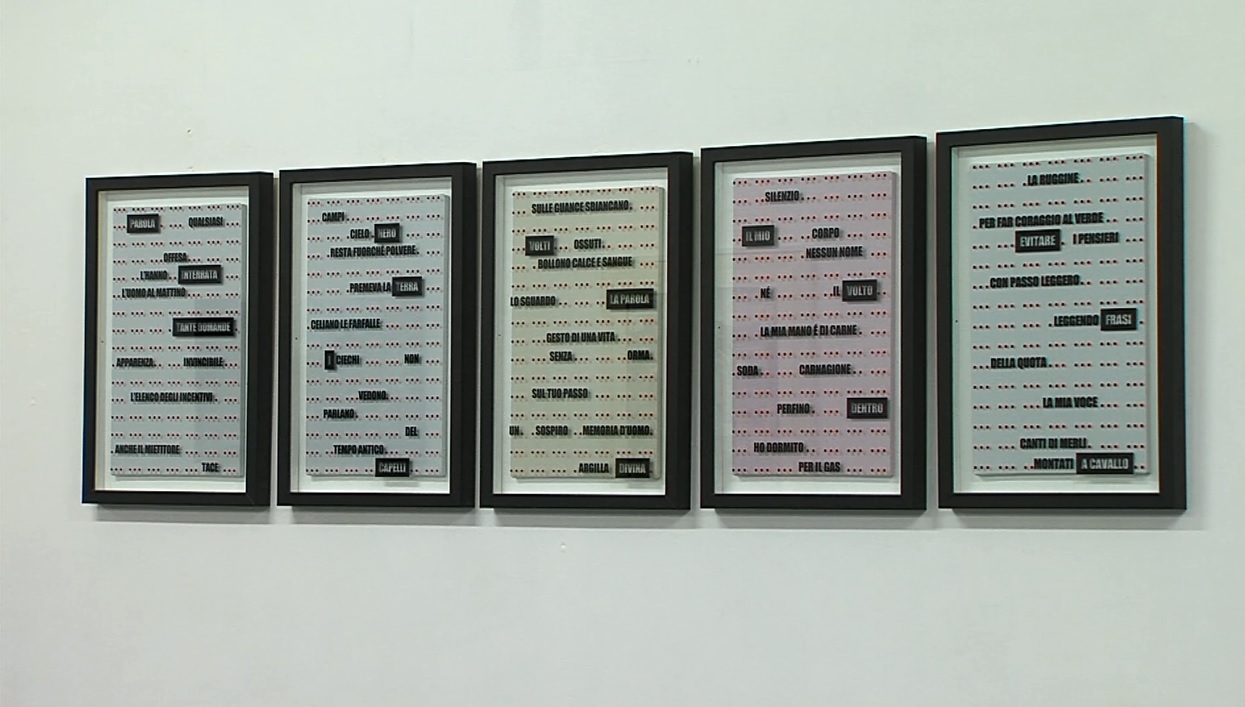 PAROLA QUALSIASI
OFFESA
L'HANNO INTERRATA
L'UOMO AL MATTINO
TANTE DOMANDE
APPARENZA INVINCIBILE
L'ELENCO DEGLI INCENTIVO
ANCHE IL MIETITORE
TACE
CAMPI
CIELO NERO
RESTA FUORCHÉ POLVERE
PREMEVA LA TERRA
CELIANO LE FARFALLE
I CIECHI NON
VEDONO
PARLANO
DEL
TEMPO ANTICO
CAPELLI
SULLE GUANCE SBIANCANO
VOLTI OSSUTI
BOLLONO CALCE E SANGUE
LO SGUARDO LA PAROLA
GESTO DI UNA VITA
SENZA ORMA
SUL TUO PASSO
UN SOSPIRO MEMORIA D'UOMO
ARGILLA DIVINA
SILENZIO
IL MIO CORPO
NESSUN NOME
NÉ IL VOLTO
LA MIA MANO É DI CARNE
SODA CARNAGIONE
PERFINO DENTRO
HO DORMITO
PER IL GAS
LA RUGGINE
PER FAR CORAGGIO AL VERDE
EVITARE I PENSIERI
CON PASSO LEGGERO
LEGGENDO FRASI
DELLA QUOTA
LA MIA VOCE
CANTI DI MERLI
MONTATI A CAVALLO